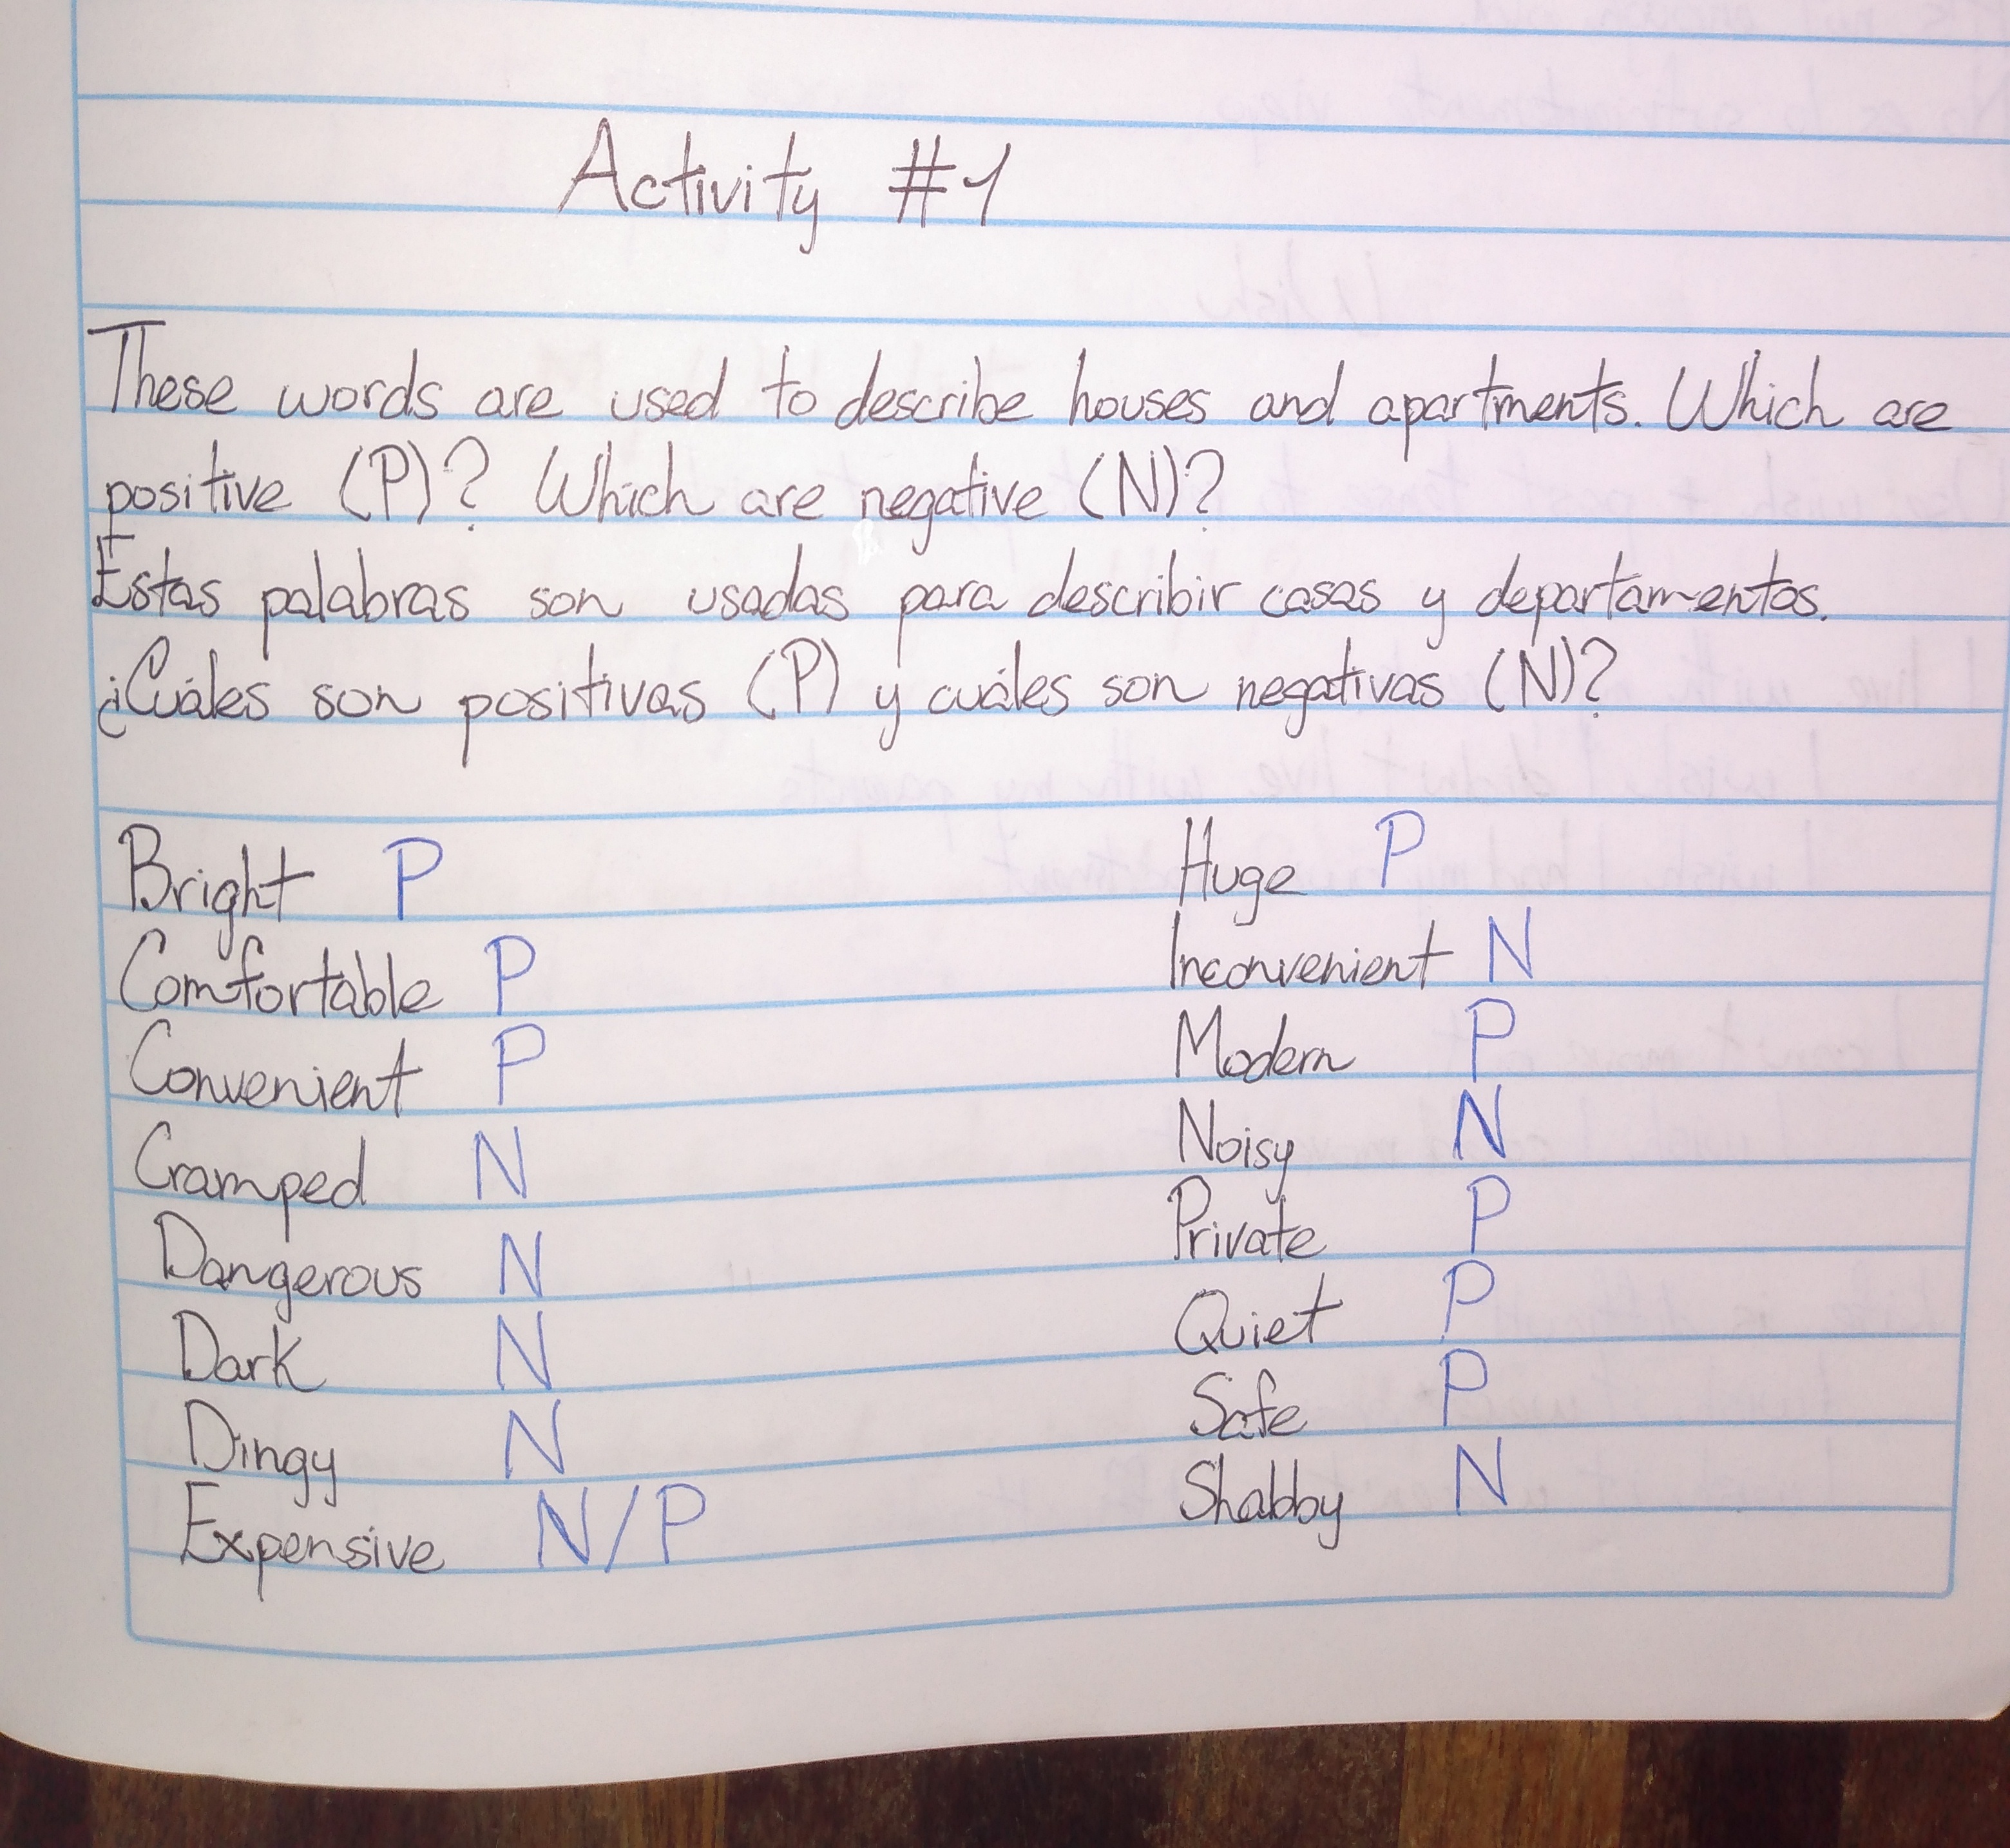 Activity #1
These words are used to describe houses and apartments. Which are
positive (P)? Which are negative (N)?
Estas palabras son usadas para describir casas y departamentos.
¿Cuáles son positivas (P) y cuáles son negativas (N)?
Bright P
Comfortable P
Convenient P
Cramped N
Dangerous N
Dark N
Dingy N
Expensive N/P
Huge P
Inconvenient N
Modern P
Noisy N
Private P
Quiet P
Safe P
Shabby N